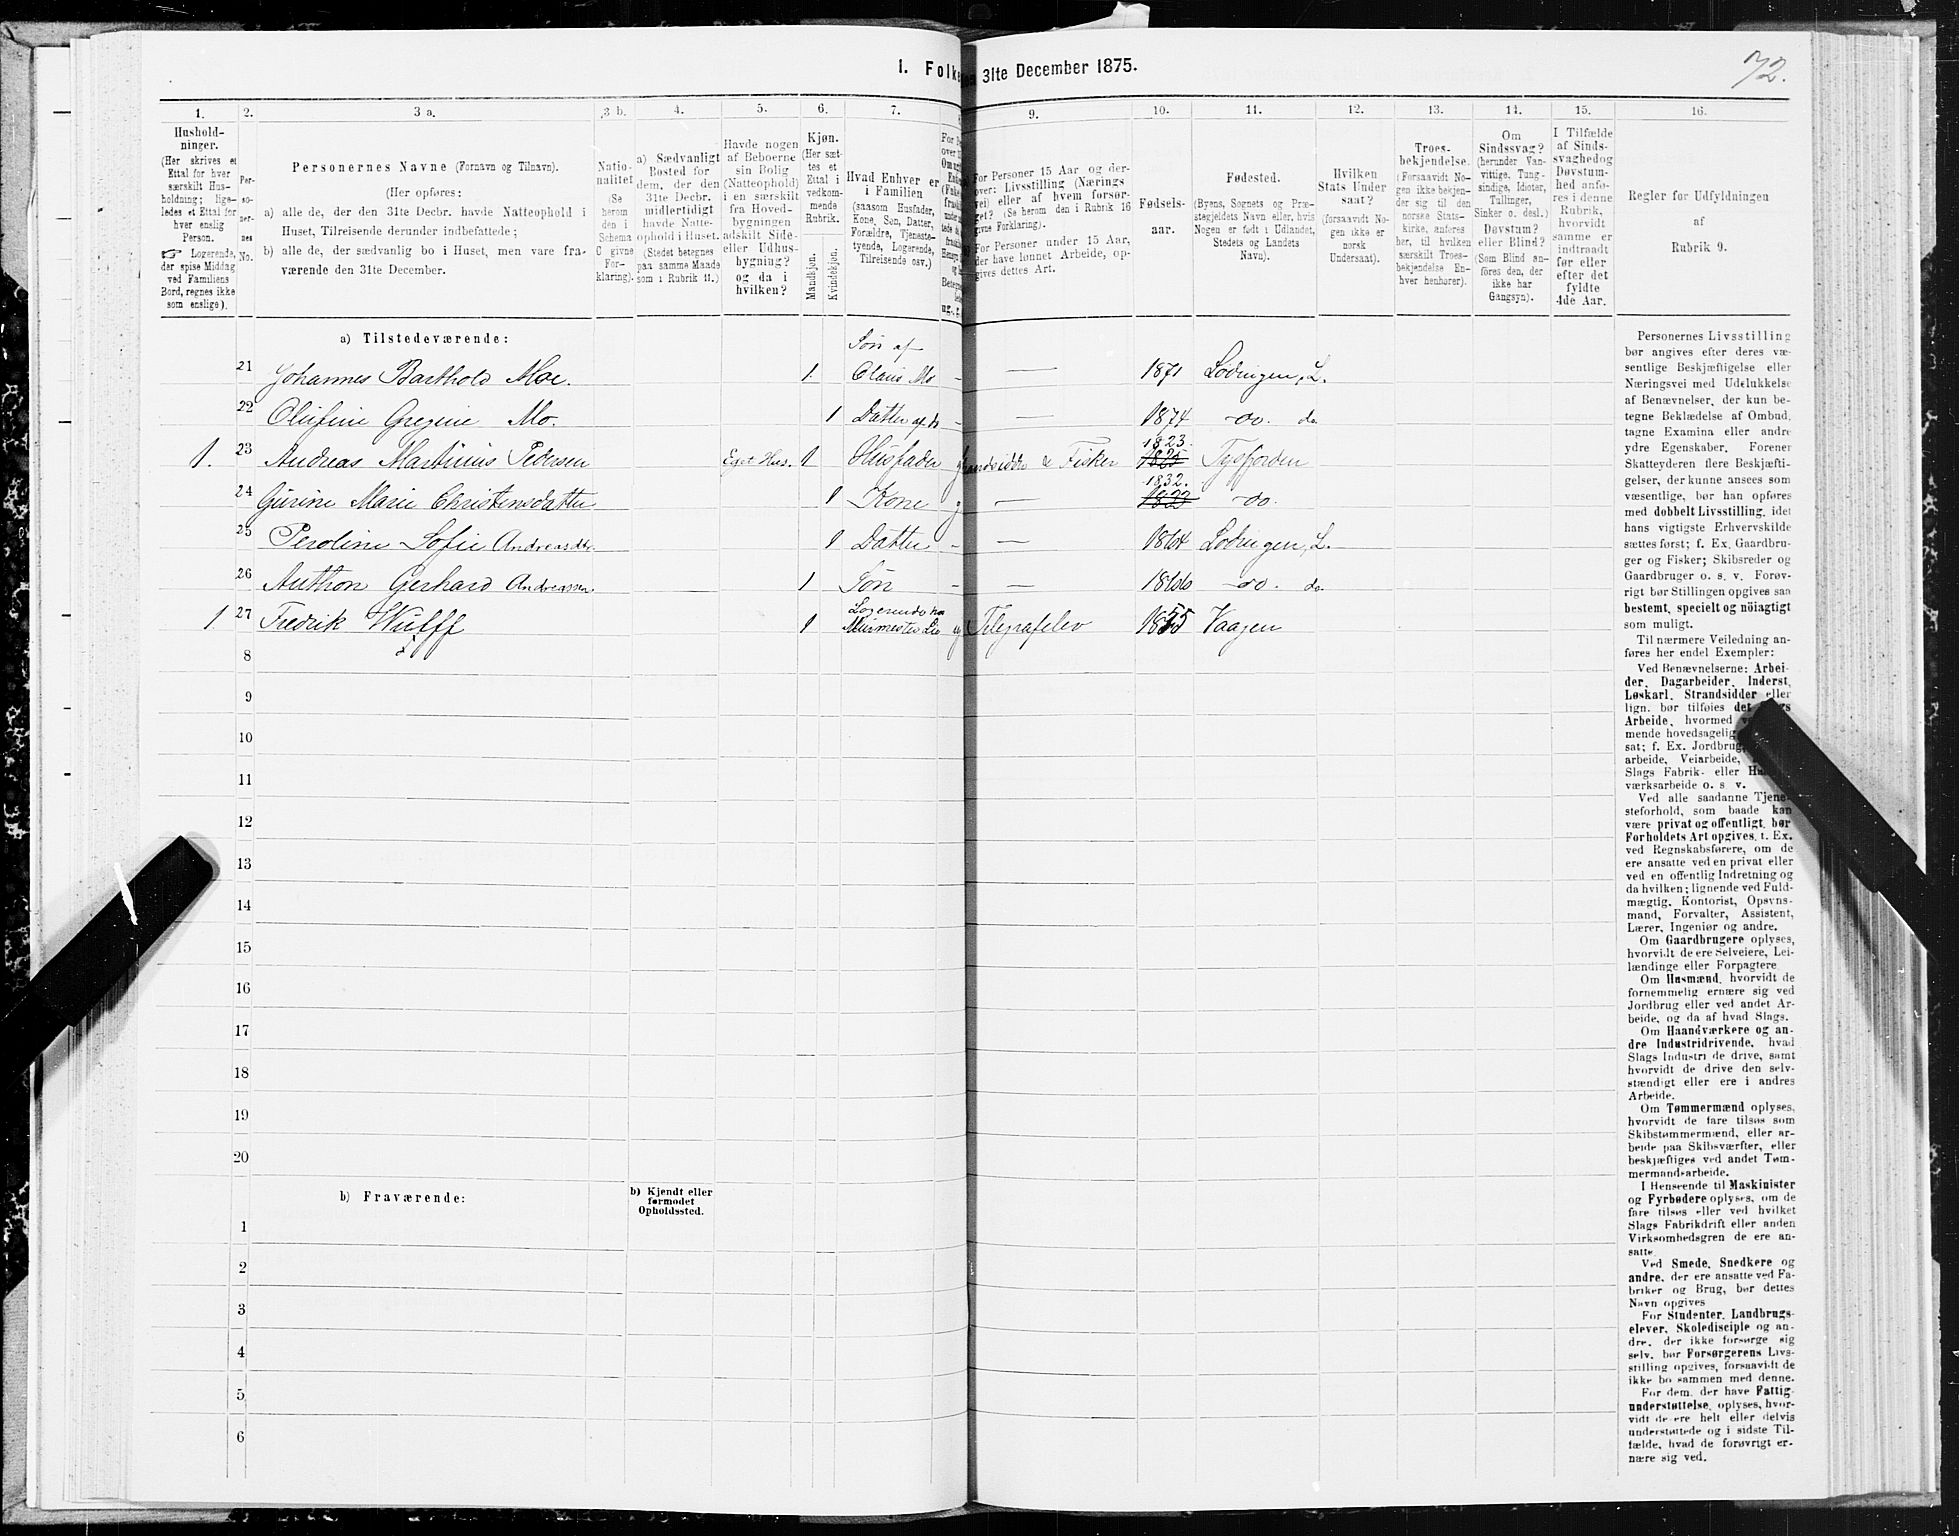 72.
1. Folke
31te December 1875.
1.
2.
3 a.
3 b.
4.
5.
6.
7.
9.
10.
11.
12.
13.
14.
15.
16.
Hushold-
ninger.
(Her skrives et
Ettal for hver
særskilt Hus-
holdning; lige-
ledes et Ettal for
hver enslig
Person.
☞ Logerende,
der spise Middag
ved Familiens
Bord, regnes ikke
som enslige).
Per-
so-
ner-
nes
No.
Personernes Navne (Fornavn og Tilnavn).
(Her opføres:
a) alle de, der den 31te Decbr. havde Natteophold i
Huset, Tilreisende derunder indbefattede;
b) alle de, der sædvanlig bo i Huset, men vare fra-
værende den 31te December.
Natio-
nalitet
(Se
herom
den i
Schema
6 givne
For-
klaring).
a) Sædvanligt
Bosted for
dem, der den
31te Decbr.
midlertidigt
havde Natte-
ophold i Huset.
(Stedet betegnes
paa samme Maade
som i Rubrik 11.)
Havde nogen
af Beboerne
sin Bolig
(Natteophold)
i en særskilt
fra Hoved-
bygningen
adskilt Side-
eller Udhus-
bygning?
og da i
hvilken?
Kjøn.
(Her sæt-
tes et
Ettal i
vedkom-
mende
Rubrik.
Mandkjøn.
Kvindekjøn.
Hvad Enhver er
i Familien
(saasom Husfader,
Kone, Søn, Datter,
Forældre, Tjeneste-
tyende, Logerende,
Tilreisende osv.)
For Personer 15 Aar og der-
over: Livsstilling (Nærings
vei) eller af hvem forsør-
get? (Se herom den i Rubrik 16
givne Forklaring).
For Personer under 15 Aar,
der have lønnet Arbeide, op-
gives dettes Art.
Fødsels-
aar.
Fødested.
(Byens, Sognets og Præ-
stegjeldets Navn eller, hvis
Nogen er født i Udlandet,
Stedets og Landets
Navn).
Hvilken
Stats Under
saat?
(forsaavidt No-
gen ikke er
norsk
Undersaat).
Troes-
bekjendelse.
(Forsaavidt No-
gen ikke bekjen-
der sig til den
norske Stats-
kirke, anføres
her, til hvilken
særskilt Troes-
bekjendelse En-
hver henhører).
Om
Sindssvag?
(herunder Van-
vittige, Tung-
sindige, Idioter,
Tullinger,
Sinker o. desl.)
Døvstum?
eller Blind?
(Som Blind an-
føres den, der
ikke har
Gangsyn).
I Tilfælde
af Sinds-
svaghedog
Døvstum-
hed anfø-
res i denne
Rubrik,
hvorvidt
samme er
indtraadt
før eller
efter det
fyldte
4de Aar.
Regler for Udfyldningen
af
Rubrik 9.
a) Tilstedeværende:
21 Johannes Barthold Moe. 1 Søn af Claus Mo - — 1871 Lødingen, L.
22 Olufine Gregine Mo. 1 Datter af do - — 1874 -do- do
1. 23 Andreas Martinus Pedersen Eget Hus. 1 Husfader g Strandsidder & Fisker 1823. 1825 Tysfjorden
24 Gurine Marie Christensdatter 1 Kone g — 1832. -do-
25 Peroline Sofie Andreasdtr. 1 Datter - — 1864 Lødingen, L.
26 Anthon Gerhard Andreassen 1 Søn - — 1866 -do- do
1. 27 Fredrik Wulff 1 Logerende hos Murmester Lie ug Telegrafelev 1855 Vaagen
8
9
10
11
12
13
14
15
16
17
18
19
20
b) Fraværende:
b) Kjendt eller
formodet
Opholdssted.
1
2
3
4
5
6
Personernes Livsstilling
bør angives efter deres væ-
sentlige Beskjæftigelse eller
Næringsvei med Udelukkelse
af Benævnelser, der kun be-
tegne Beklædelse af Ombud,
tagne Examina eller andre
ydre Egenskaber. Forener
Skatteyderen flere Beskjæfti-
gelser, der kunne ansees som
væsentlige, bør han opføres
med dobbelt Livsstilling, idet
hans vigtigste Erhvervskilde
sættes først; f. Ex. Gaardbru-
ger og Fisker; Skibsreder og
Gaardbruger o. s. v. Forøv-
rigt bør Stillingen opgives saa
bestemt, specielt og nöiagtigt
som muligt.
Til nærmere Veiledning an-
føres her endel Exempler:
Ved Benævnelserne: Arbei-
der, Dagarbeider, Inderst,
Løskarl, Strandsidder eller
lign. bør tilføies det
Arbeide, hvormed
mende hovedsagelig
sat; f. Ex. Jordbrug,
arbeide, Veiarbeide,
Slags Fabrik- eller
værksarbeide o. s v.
Ved alle saadanne Tjene-
steforhold, som baade kan
være privat og offentligt, bør
Forholdets Art opgives, t. Ex.
ved Regnskabsførere, om de
ere ansatte ved en privat eller
ved en offentlig Indretning og
da hvilken; lignende ved Fuld-
mægtig, Kontorist, Opsyns-
mand, Forvalter, Assistent,
Lærer, Ingeniør og andre.
Om Gaardbrugere oplyses,
hvorvidt de ere Selveiere, Lei-
lændinge eller Forpagtere
Om Husmænd, hvorvidt de
fornemmelig ernære sig ved
Jordbrug eller ved andet Ar-
beide, og da af hvad Slags.
Om Haandværkere og an-
dre Industridrivende, hvad
Slags Industri de drive, samt
hvorvidt de drive den selv-
stændigt eller ere i andres
Arbeide.
Om Tømmermænd oplyses,
hvorvidt de fare tilsøs som
Skibstømmermænd, eller ar-
beide paa Skibsværfter, eller
beskjæftiges ved andet Tøm-
mermandsarbeide.
I Henseende til Maskinister
og Fyrbødere oplyses, om de
fare tilsøs eller ved hvilket
Slags Fabrikdrift eller anden
Virksomhedsgren de ere an-
satte.
Ved Smede, Snedkere og
andre, der ere ansatte ved Fa-
briker og Brug, bør dettes
Navn opgives
For Studenter, Landbrugs-
elever, Skoledisciple og an-
dre, der ikke forsørge sig
selv, bør Forsørgerens Livs-
stilling opgives, forsaavidt de
ikke bo sammen med denne.
For dem, der have Fattig-
understøttelse, oplyses, hvor-
vidt de ere helt eller delvis
understøttede og i sidste Til-
fælde, hvad de forøvrigt er-
nære sig ved.